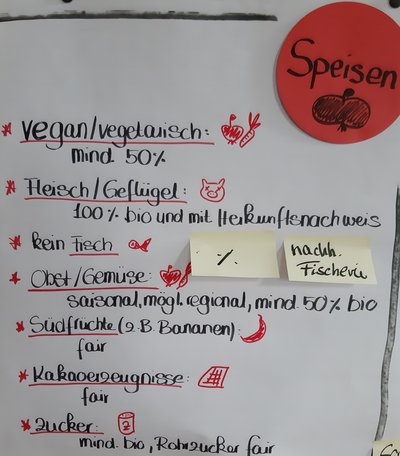 Speisen
* vegan/vegetarisch:
mind. 50%
* Fleisch/Geflügel:
100% bio und mit Herkunftsnachweis
* kein Fisch
%
nachh.
Fischerei
* Obst/Gemüse:
saisonal, mögl. regional, mind. 50% bio
* Südfrüchte (z.B. Bananen):
fair
* Kakaoerzeugnisse:
fair
* Zucker:
mind. bio, Rohrzucker fair